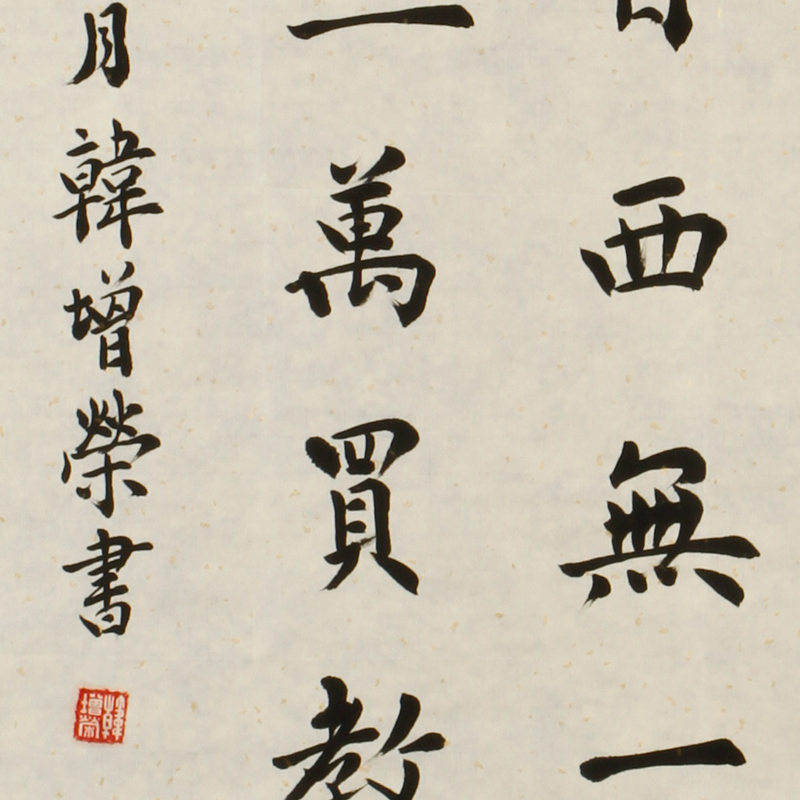 西無一
一萬買教
月韓增榮書
韓增榮